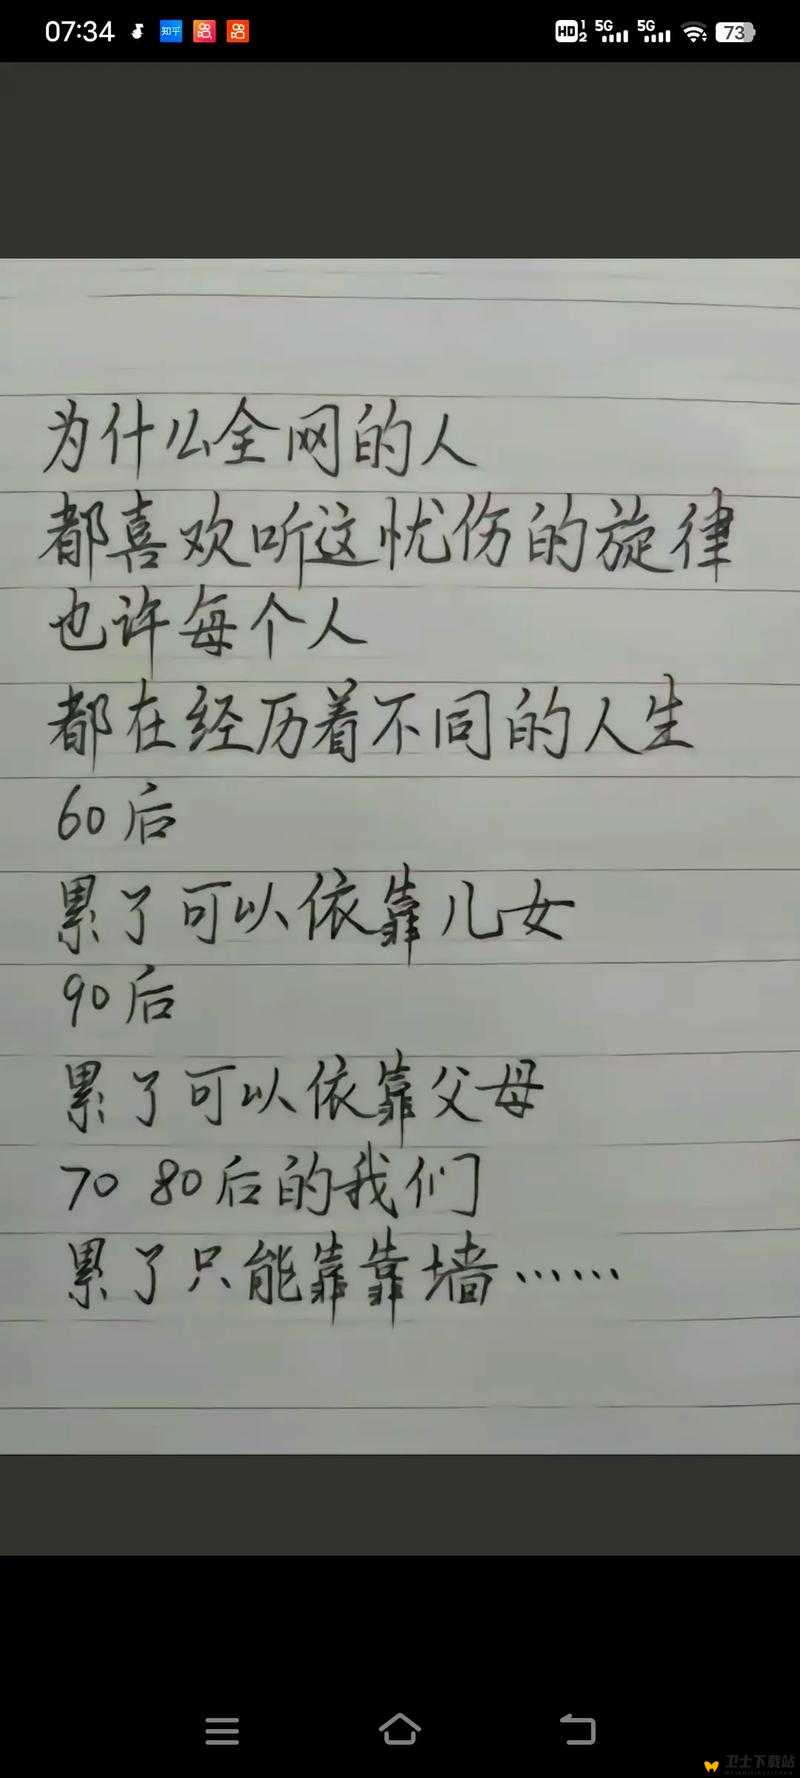 07:34 知乎 HD 1 2 5G 5G 73
为什么全网的人
都喜欢听这忧伤的旋律
也许每个人
都在经历着不同的人生
60后
累了可以依靠儿女
90后
累了可以依靠父母
70 80后的我们
累了只能靠靠墙……
卫士下载站